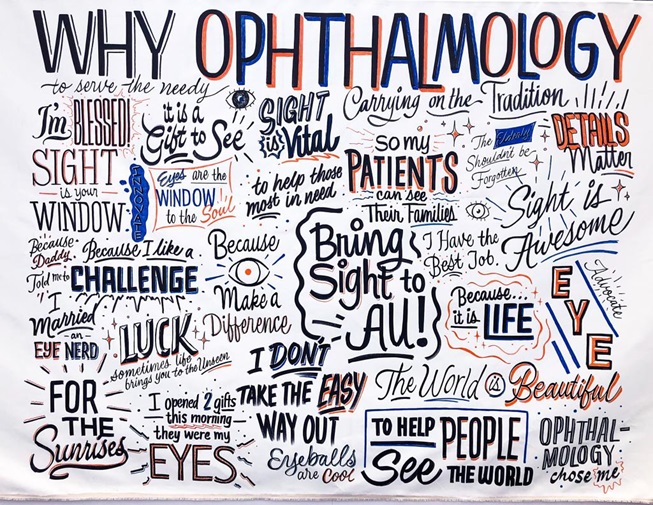 WHY OPHTHALMOLOGY
to serve the needy
I'm BLESSED!
it is a
Gift to See
SIGHT
is Vital
Carrying on the Tradition
So my
PATIENTS
can see
Their Families
The Elderly
Shouldn't be
Forgotten
DETAILS
Matter
SIGHT
is your
WINDOW
INNOVATE
Eyes are the
WINDOW
to the Soul
to help those
most in need
Sight is
Awesome
Because
Daddy
Told me to
Because I like a
CHALLENGE
Because
Make a
Difference
Bring
Sight to
All!
I Have the
Best Job.
Because...
it is LIFE
EYE
Advocate
I
Married
an
EYE NERD
LUCK
sometimes life
brings you to the Unseen
I DON'T
TAKE THE EASY
WAY OUT
The World is Beautiful
FOR
THE
Sunrises
I opened 2 gifts
this morning
they were my
EYES
Eyeballs
are Cool
TO HELP PEOPLE
See THE WORLD
OPHTHAL-
MOLOGY
chose me